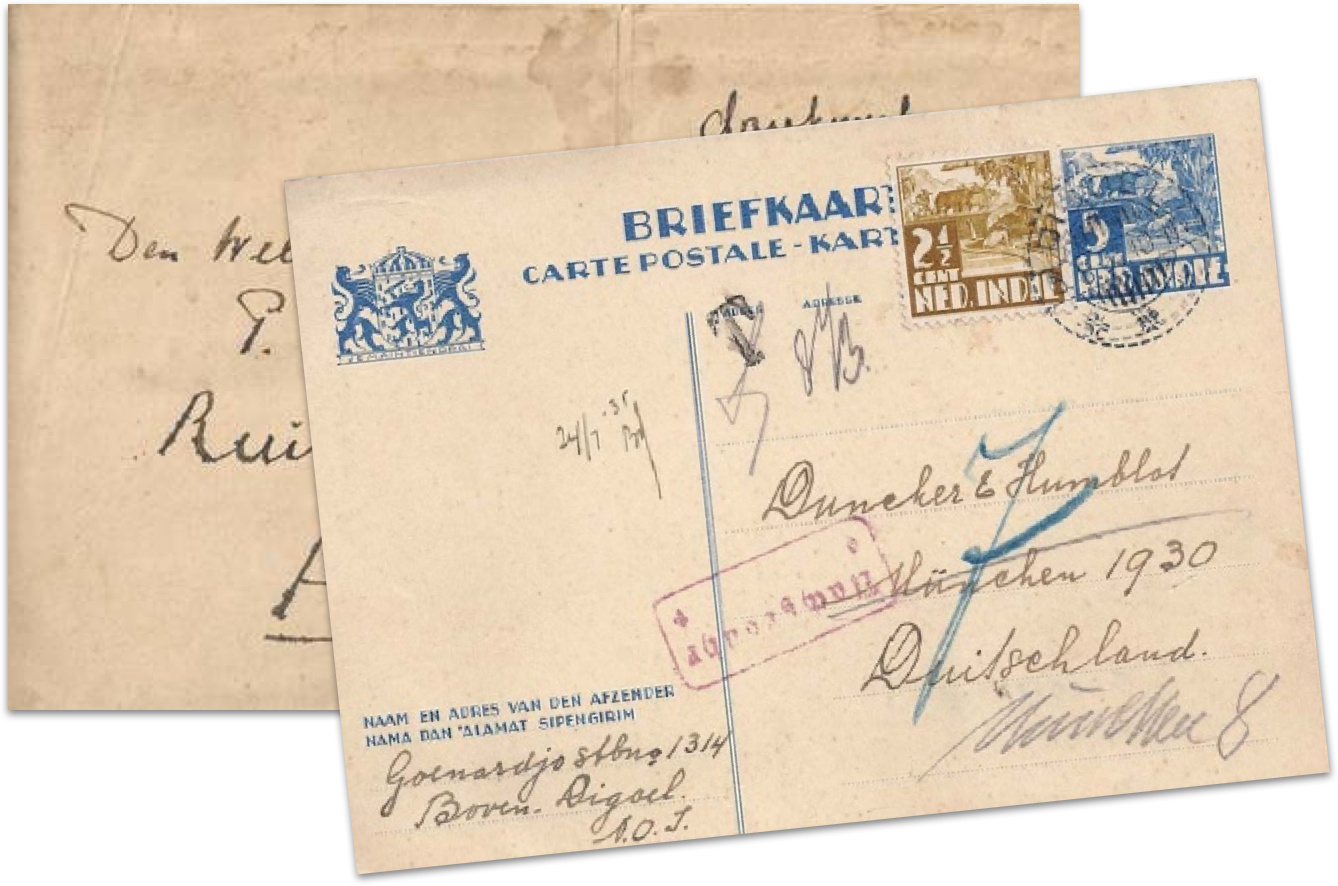 drukwerk
Den Wel
P.
Rui
A
BRIEFKAAR
CARTE POSTALE - KART
JE MAINTIENDRAI
2½
CENT
NED. INDIE
5
CENT
NED. INDIE
ADRESSE
8/B.
24/7 '35
Duncker & Humblot
München 1930
Duitschland.
München 8
7
NAAM EN ADRES VAN DEN AFZENDER
NAMA DAN 'ALAMAT SIPENGIRIM
Goenardjo stbno 1314
Boven-Digoel.
N.O.I.